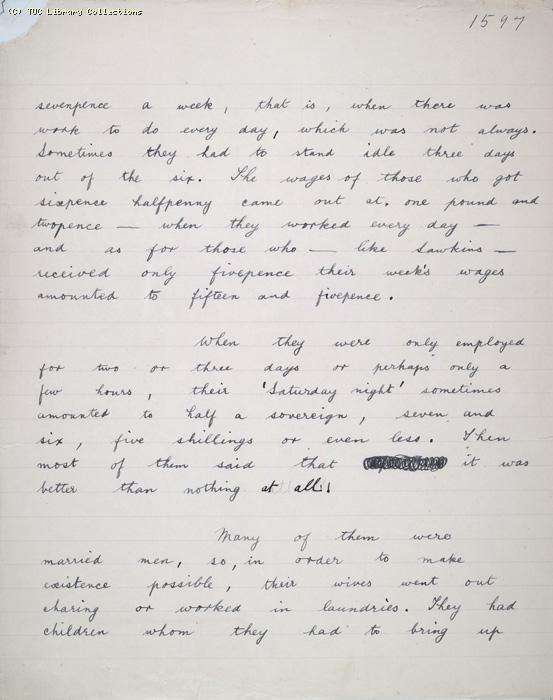 (C) TUC Library Collections
1597
sevenpence a week, that is, when there was
work to do every day, which was not always.
Sometimes they had to stand idle three days
out of the six. The wages of those who got
sixpence halfpenny came out at, one pound and
twopence — when they worked every day —
and as for those who — like Sawkins —
received only fivepence their week's wages
amounted to fifteen and fivepence.
When they were only employed
for two or three days or perhaps only a
few hours, their 'Saturday night' sometimes
amounted to half a sovereign, seven and
six, five shillings or even less. Then
most of them said that it was
better than nothing at all!
Many of them were
married men, so, in order to make
existence possible, their wives went out
charing or worked in laundries. They had
children whom they had to bring up